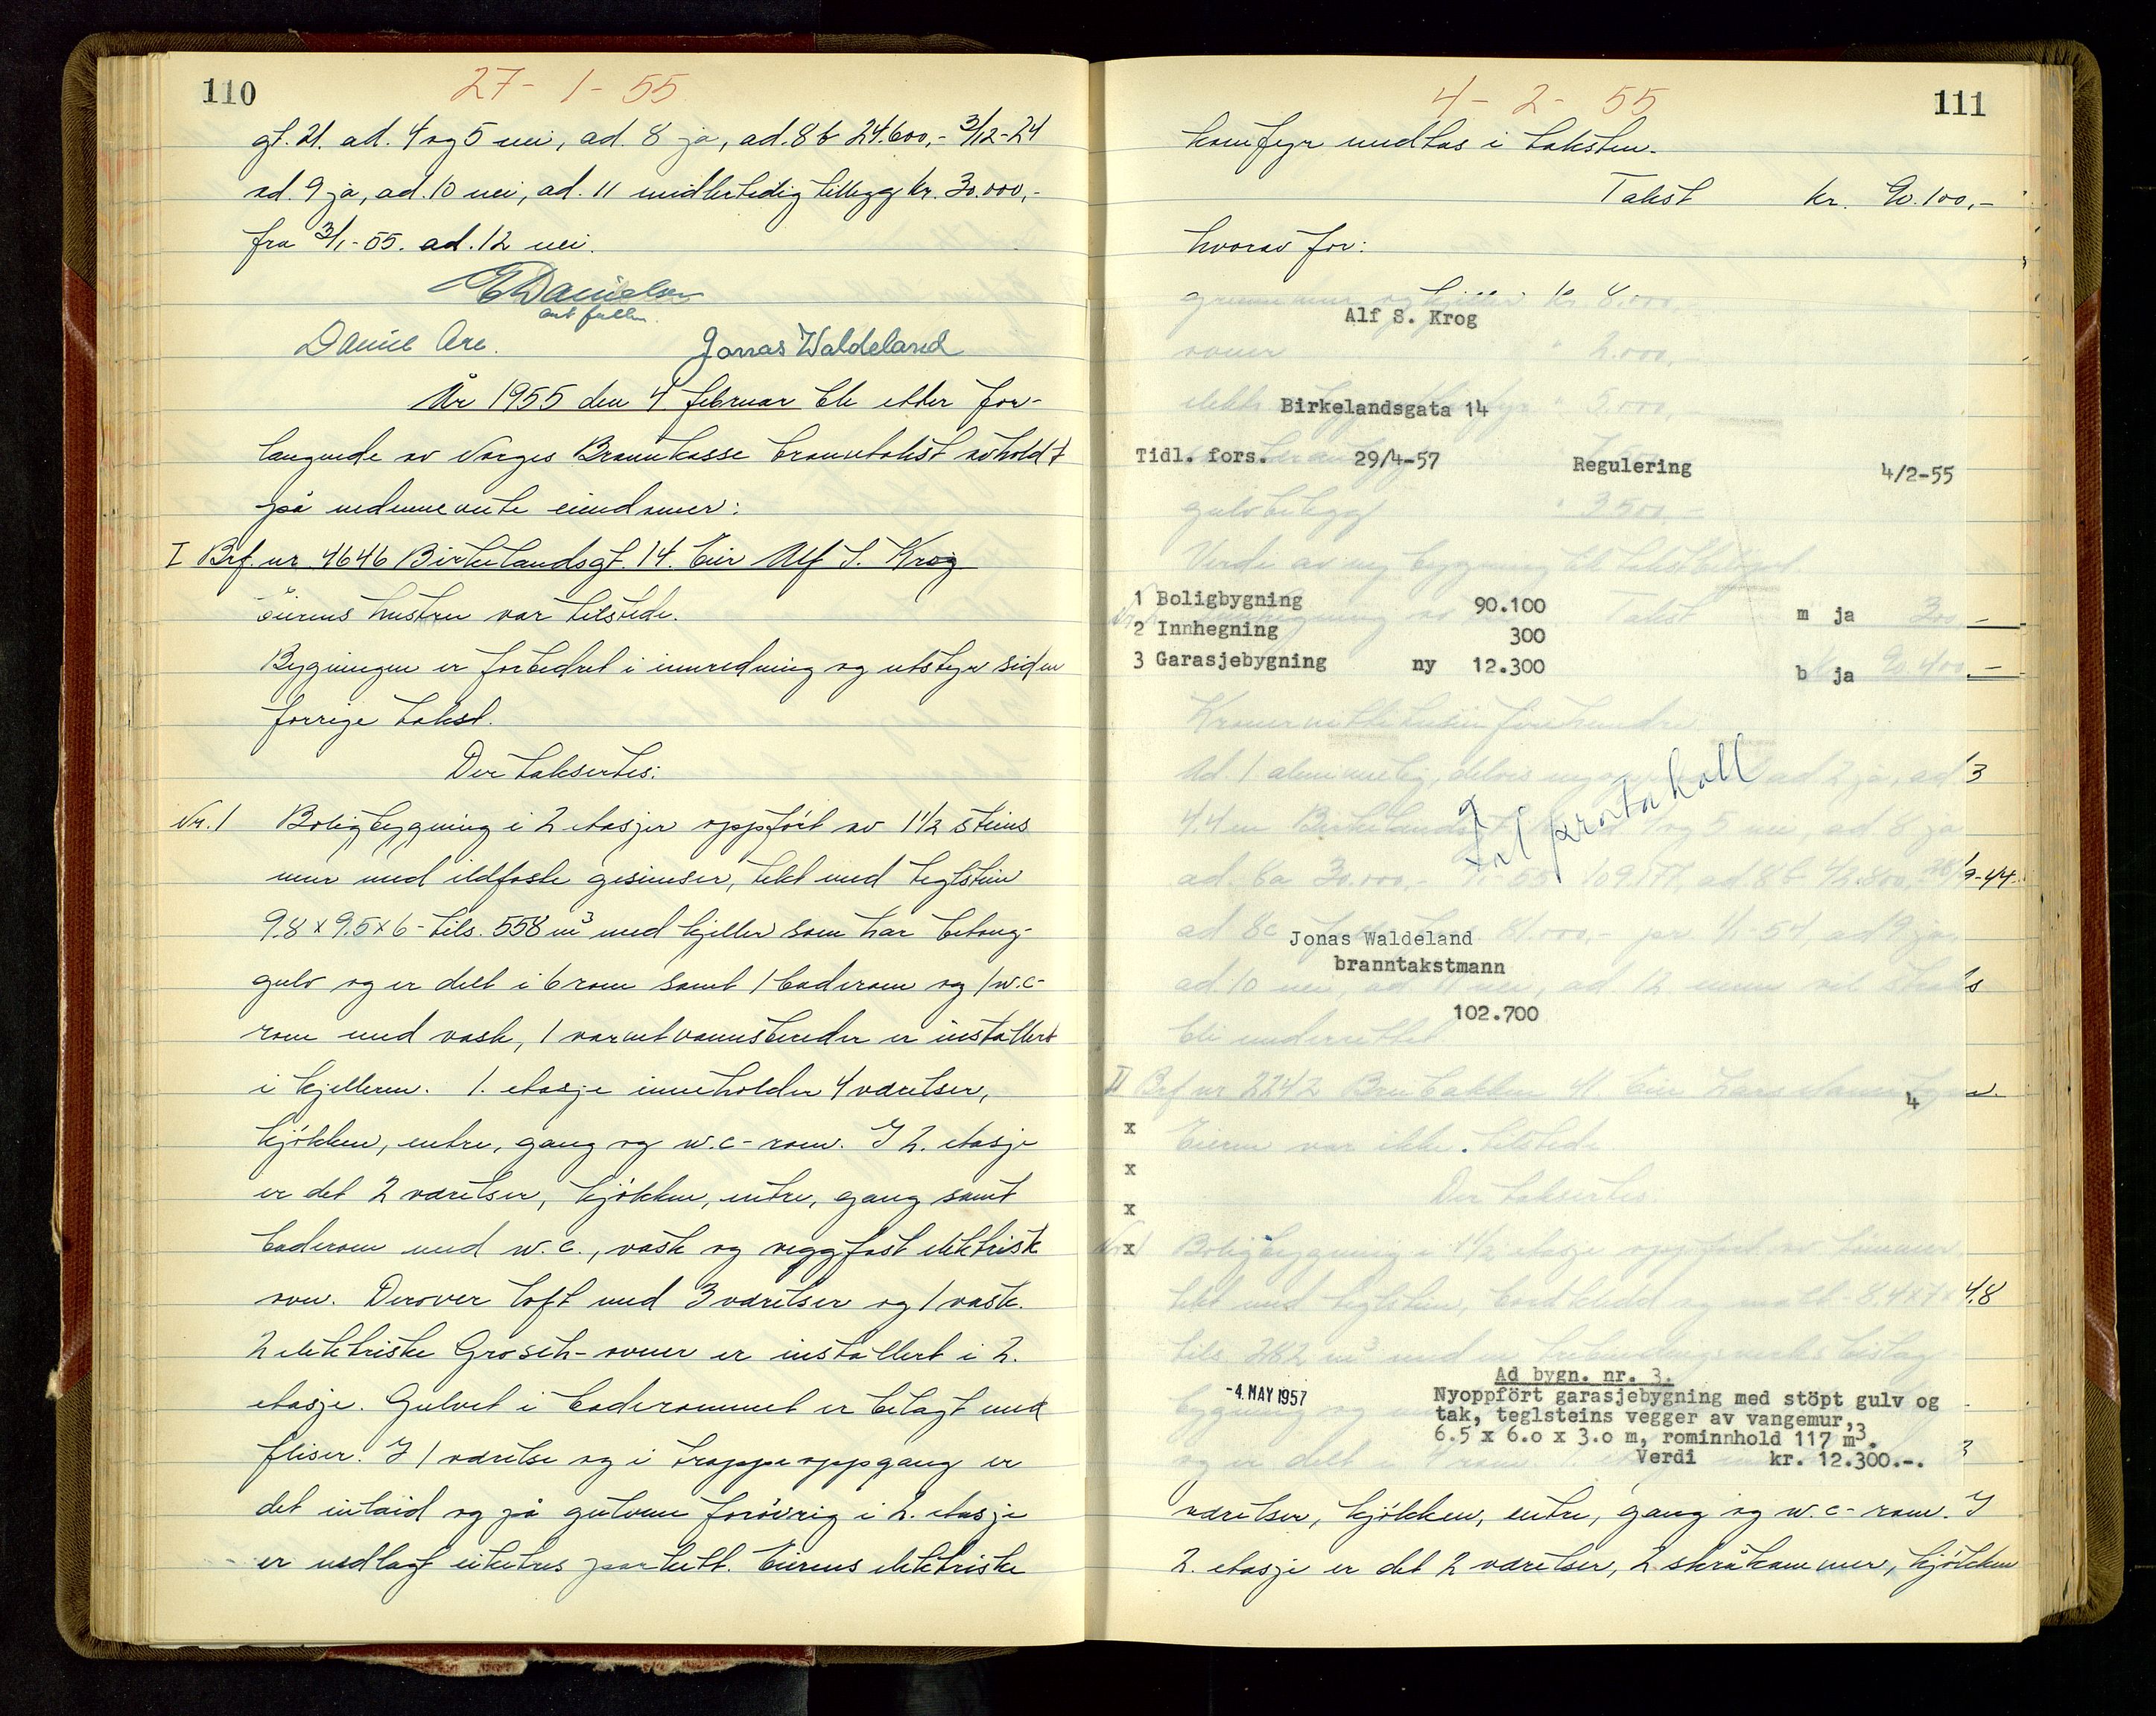 110
27-1-55
gt. 21. ad. 4 og 5 nei, ad. 8 ja, ad. 8 b 24.600,- 3/12-24
ad. 9 ja, ad. 10 nei, ad. 11 midlertidig tillegg kr. 30.000,-
fra 3/1-55. ad. 12 nei.
E Danielsen
Daniel Are. Jonas Waldeland
År 1955 den 4. februar ble etter for-
langende av Norges Brannkasse branntakst avholdt
på nedennevnte eiendommer:
I Brf. nr 4646 Birkelandsgt. 14. Eier Alf S. Krog
Eierens hustru var tilstede.
Bygningen er forbedret i innredning og utstyr siden
forrige takst.
Der taksertes:
Nr. 1 Boligbygning i 2 etasjer oppført av 1 1/2 steins
mur med ildfaste gesimser, tekt med teglstein
9.8 x 9.5 x 6 - tils. 558 m³ med kjeller som har betong-
gulv og er delt i 6 rom samt 1 baderom og 1 w.c-
rom med vask, 1 varmtvannsbereder er installert
i kjelleren. 1. etasje inneholder 4 værelser,
kjøkken, entre, gang og w.c-rom. I 2. etasje
er det 2 værelser, kjøkken, entre, gang samt
baderom med w.c., vask og veggfast elektrisk
ovn. Derover loft med 3 værelser og 1 vask.
2 elektriske Grosch-ovner er installert i 2.
etasje. Gulvet i baderommet er belagt med
fliser. I 1 værelse og i trappeoppgang er
det inlaid og på gulvene forøvrig i 2. etasje
er nedlagt eiketres parkett. Eierens elektriske
111
4-2-55
komfyr medtas i taksten.
Takst kr. 90.100,-
hvorav for:
grunnmur og kjeller kr. 8.000,-
Alf S. Krog
ovner " 2.000,-
Birkelandsgata 14
Tidl. fors. 29/4-57 Regulering 4/2-55
gulvbelegg " 3500,-
Verdi av ny bygning lik takstbeløpet.
1 Boligbygning 90.100 m ja
2 Innhegning 300
3 Garasjebygning ny 12.300 b ja
Takst 300,-
90.400,-
Kroner nittitusen firehundre
Ad. 1 alminnelig, ad 2 ja, ad 3
Tal protokoll
4.4 m Birkelandsgt. 4 og 5 nei, ad. 6 ja
ad. 8c 81.000,- pr 1/1-54 ad 9 ja
Jonas Waldeland
branntakstmann
102.700
ad. 10 nei, ad 11 nei, ad. 12 straks
bli underrettet
II Brf nr 2242 Brubakken 41. Eier Lars
4
x
x
x
x
Eieren var ikke tilstede
Der taksertes
Nr. 1 Boligbygning i 1 1/2 etasje oppført av tømmer
tekt med teglstein, bordkledd og malt - 8.4 x 7 x 4.8
tils 282 m³
-4. MAY 1957
Ad bygn. nr. 3.
Nyoppfört garasjebygning med stöpt gulv og
tak, teglsteins vegger av vangemur,
6.5 x 6.o x 3.o m, rominnhold 117 m³.
Verdi kr. 12.300.-.
og er delt i 4 rom. 3
værelser, kjøkken, entre, gang og w.c-rom. I
2. etasje er det 2 værelser, 2 skråkammer, kjøkken